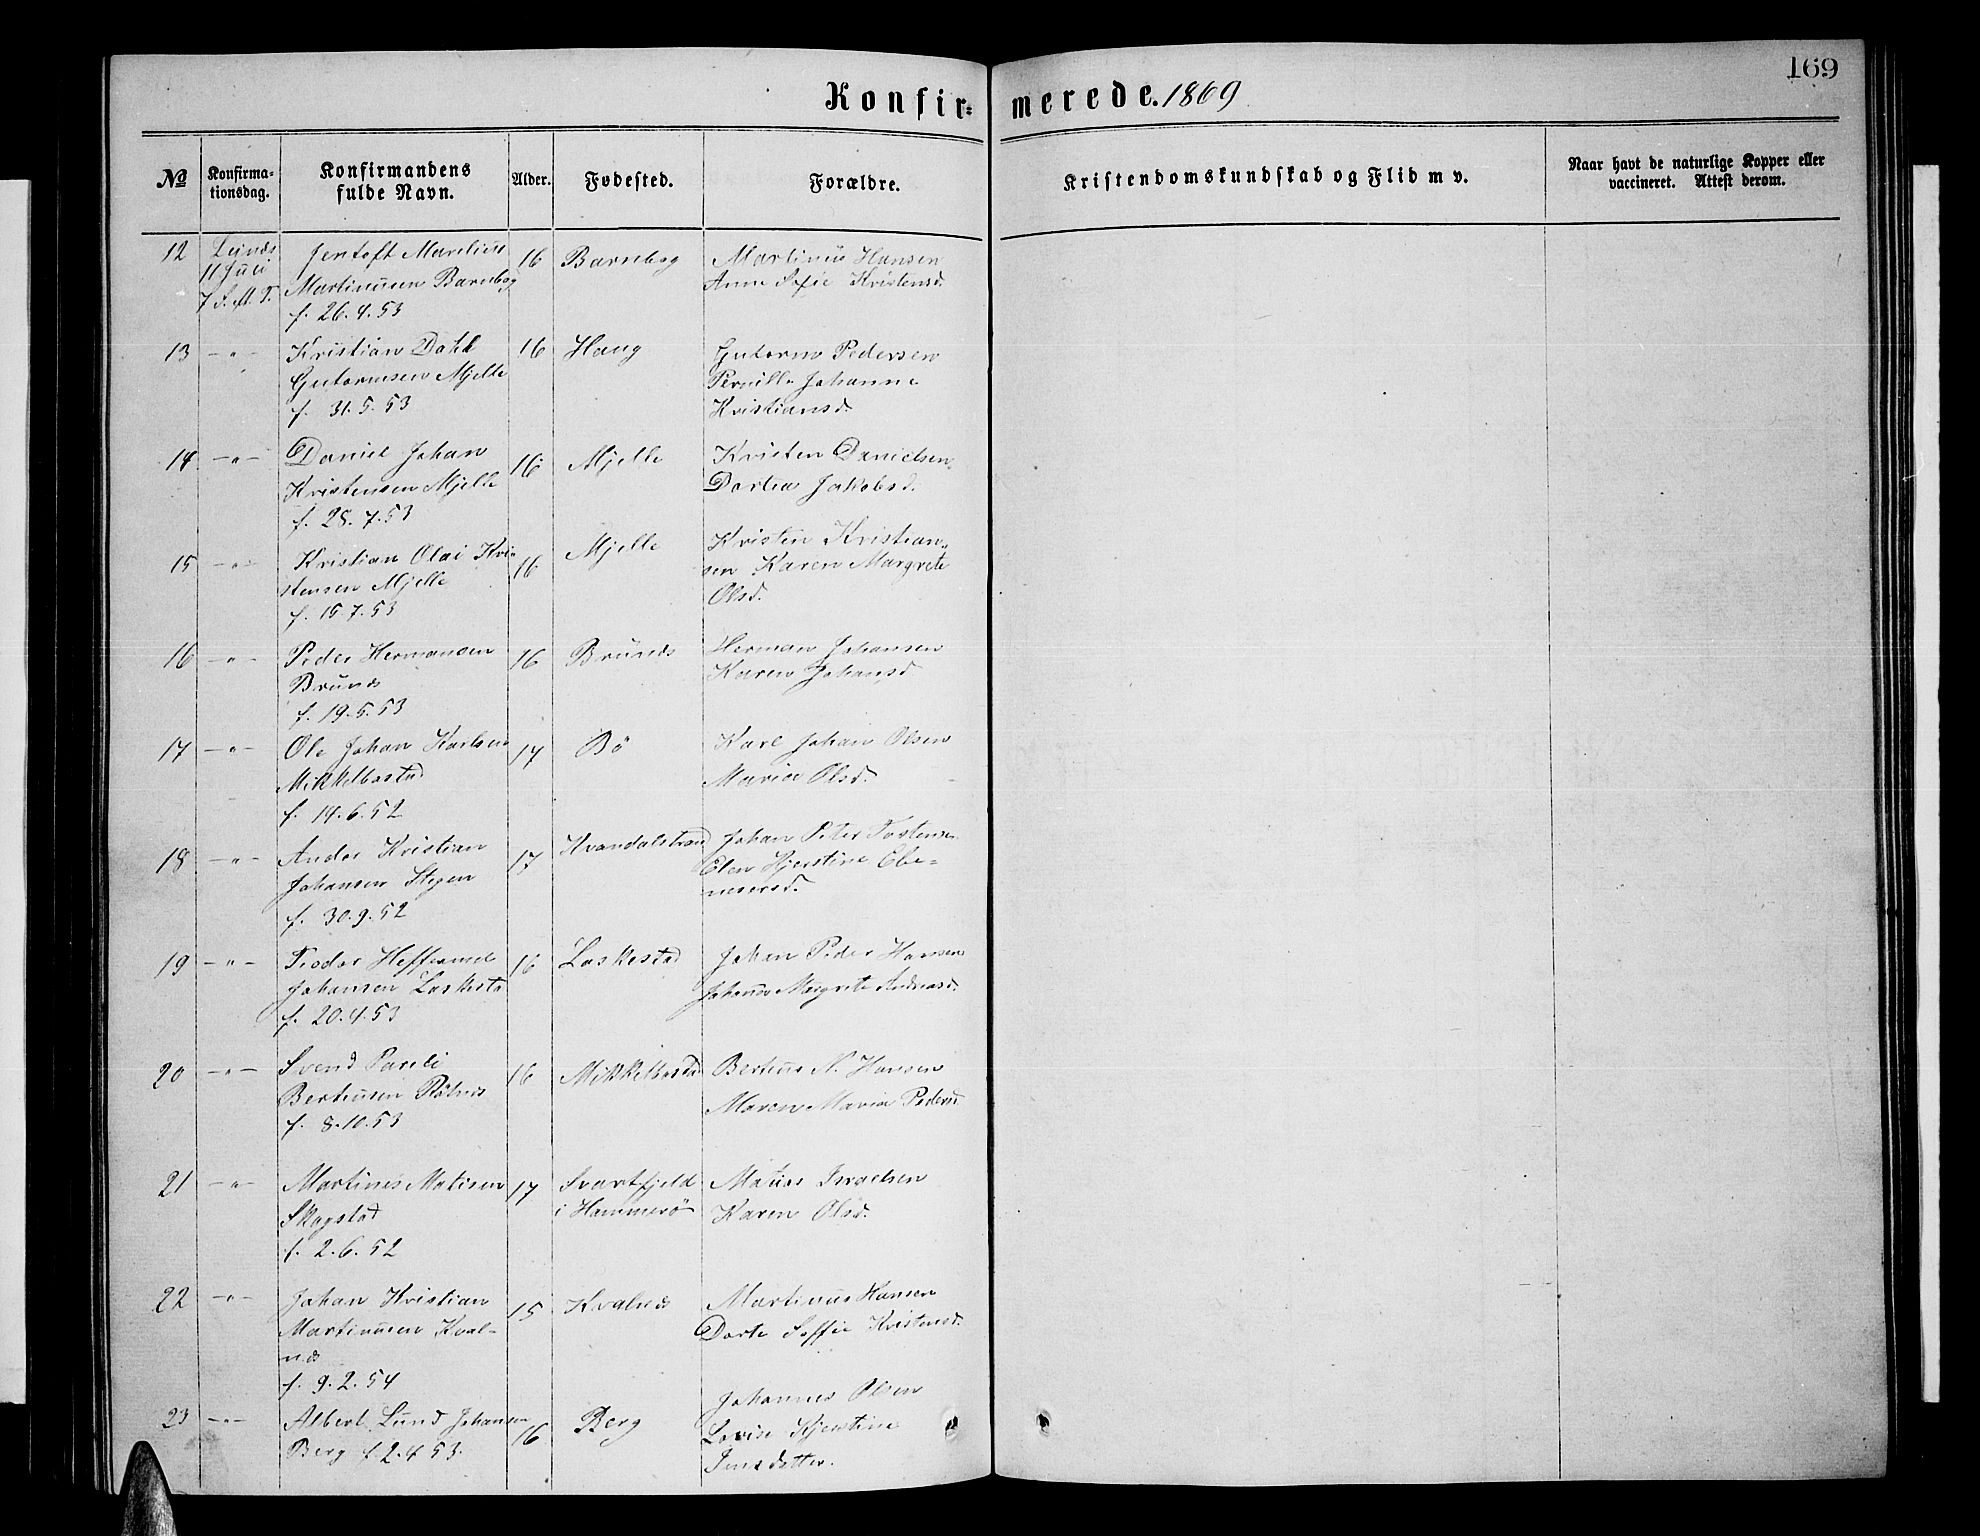 169
Konfir= merede. 1869
No
Konfirma-
tionsdag.
Konfirmandens
fulde Navn.
Alder.
Fødested.
Forældre.
Kristendomskundskab og Flid m v.
Naar havt de naturlige Kopper eller
vaccineret. Attest derom.
12 Leines Jentoft Marelius 16 Barnbog Martinus Hansen
11 Juli Martinusen Barnbog Anne Sofie Kristensd.
7 S. A. T. f. 26.4.53
13 -"- Kristian Dahl 16 Haug Gutorm Pedersen
Gutormsen Mjelle Pernille Johanne
f. 31.5.53 Kristiansd.
14 -"- Daniel Johan 16 Mjelle Kristen Danielsen
Kristensen Mjelle Dortea Jakobsd.
f. 28.7.53
15 -"- Kristian Olai Kri- 16 Mjelle Kristen Kristian-
stensen Mjelle sen Karen Margrete
f. 15.7.53 Olsd.
16 -"- Peder Hermansen 16 Brunes Herman Johansen
Brunes Karen Johansd.
f. 19.5.53
17 -"- Ole Johan Karlsen 17 Bö Karl Johan Olsen
Mikkelbostad Maria Olsd.
f. 14.6.52
18 -"- Andor Kristian 17 Kvandalstran Johan Peter Tostense
Johansen Stegen Elen Kjerstine Ebe-
f. 30.9.52 nesersd.
19 -"- Teodor Heffermel 16 Laskestad Johan Peder Hansen
Johansen Laskesta Johanna Margrete Andreasd.
f. 20.4.53
20 -"- Svend Pareli 16 Mikkelbostad Berteus N. Hansen
Berteusen Rölnes Maren Maria Pedersd.
f. 8.10.53
21 -"- Martines Matisen 17 Svartfjeld Matias Israelsen
Skogstad i Hammerö Karen Olsd.
f. 2.6.52
22 -"- Johan Kristian 15 Kvalnes Martinus Hansen
Martinusen Kval- Dorte Soffie Kristensd.
nes
f. 9.2.54
23 -"- Albert Lund Johansen 16 Berg Johannes Olsen
Berg f. 2.4.53. Lovise Kjerstine
Jensdatter.